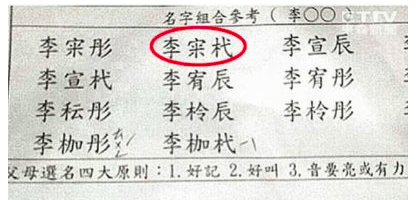 名字組合參考 ( 李○○ )
李寀彤 李寀杙 李宣辰
李宣杙 李宥辰 李宥彤
李秐彤 李柃辰 李柃彤
李枷彤 李枷杙
父母選名四大原則：1.好記 2.好叫 3.音要亮或有力